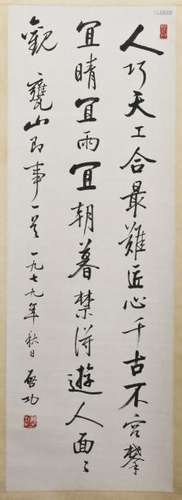 人巧天工合最難匠心千古不容攀
宜晴宜雨宜朝暮禁得遊人面〻
觀 甕山即事一首 一九七九年秋日 啟功